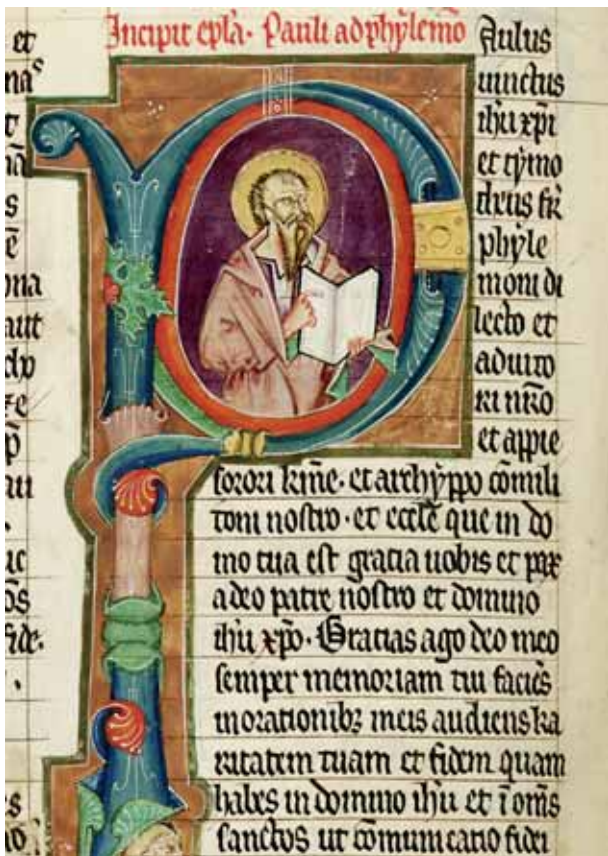 Incipit epl̃a · Pauli ad phylemõ
P aulus
uinctus
ihu xp̃i
et tymo
theus fr̃
phyle
moni di
lecto et
adiuto
ri nr̃o
et appie
sorori km̃e · et archyppo cõmili
toni nostro · et eccl̃e que in do
mo tua est gracia uobis et pax
a deo patre nostro et domino
ihu xp̃o · Gracias ago deo meo
semper memoriam tui faciẽs
in orationibꝫ meis audiens ka
ritatem tuam et fidem quam
habes in domino ihu et ĩ om̃s
sanctos ut cõmunicatio fidei